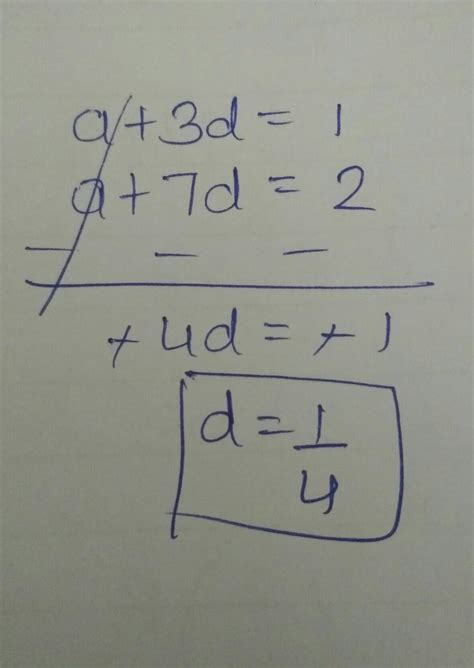 a + 3d = 1
a + 7d = 2
- - -
+ 4d = + 1
d = 1/4